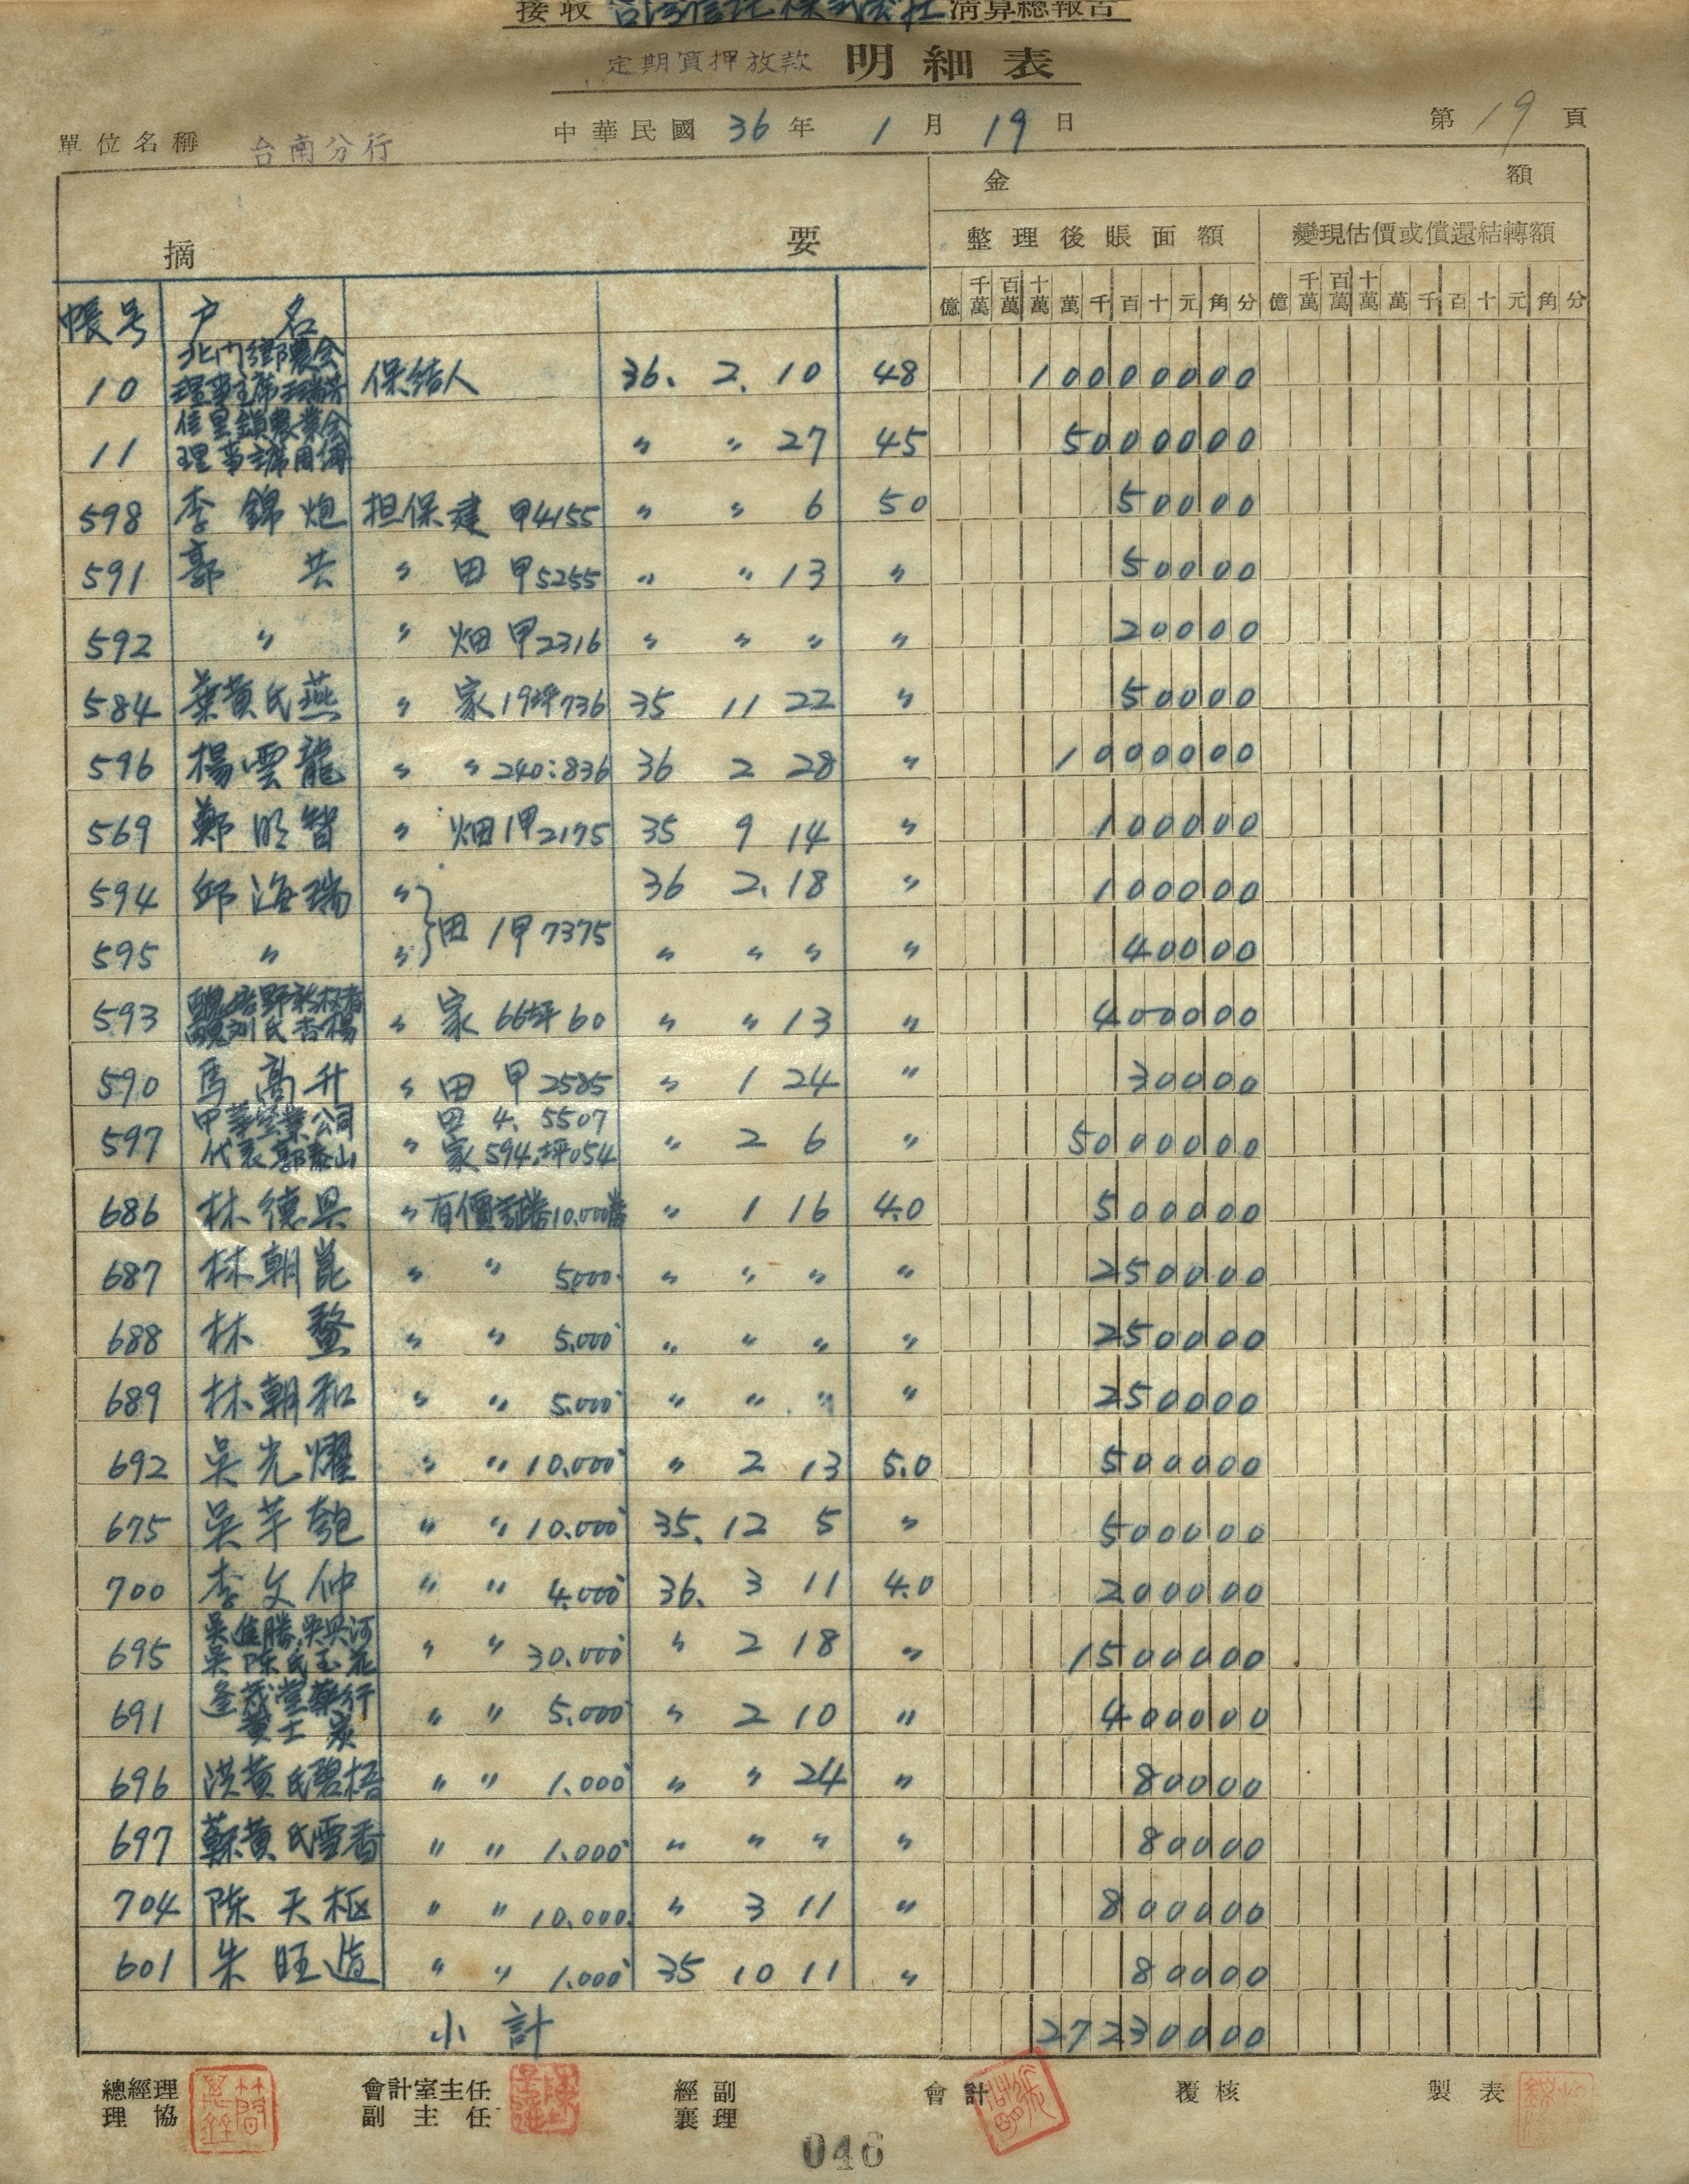 接收台灣信託株式會社清算總報告
定期質押放款 明細表
單位名稱 台南分行 中華民國 36 年 1 月 19 日 第 19 頁
摘 要 金 額
整理後賬面額 變現估價或償還結轉額
億 千萬 百萬 十萬 萬 千 百 十 元 角 分 億 千萬 百萬 十萬 萬 千 百 十 元 角 分
帳号 户名
北门鄉農会
10 理事主席 保結人 36. 2. 10 48 10000000
佳里鎮農業会
11 理事主席 〃 〃 27 45 5000000
598 李錦炮 担保 建 甲4155 〃 〃 6 50 50000
591 郭 共 〃 田 甲5255 〃 〃 13 〃 50000
592 〃 〃 畑 甲2316 〃 〃 〃 〃 20000
584 葉黄氏燕 〃 家 19坪736 35 11 22 〃 50000
596 楊雲龍 〃 〃 240:836 36 2 28 〃 1000000
569 鄭明智 〃 畑 1甲2175 35 9 14 〃 100000
594 邱海瑞 〃 36 2. 18 〃 100000
田 1甲7375
595 〃 〃 〃 〃 〃 〃 40000
593 〃 家 66坪60 〃 〃 13 〃 400000
590 馬高升 〃 田 甲2585 〃 1 24 〃 30000
中華營業公司 田 4. 5507
597 代表郭泰山 〃 家 594坪054 〃 2 6 〃 5000000
686 林德 〃 有價証券10,000 〃 1 16 4.0 500000
687 林朝崑 〃 〃 5000 〃 〃 〃 〃 250000
688 林 〃 〃 5,000 〃 〃 〃 〃 250000
689 林朝和 〃 〃 5,000 〃 〃 〃 〃 250000
692 吳光耀 〃 〃 10,000 〃 2 13 5.0 500000
675 吳 〃 〃 10,000 35. 12 5 〃 500000
700 李文仲 〃 〃 4,000 36. 3 11 4.0 200000
吳進勝,吳興河
695 吳陳氏玉花 〃 〃 30,000 〃 2 18 〃 1500000
茂堂藥行
691 黄士 〃 〃 5,000 〃 2 10 〃 400000
696 洪黄氏碧梧 〃 〃 1,000 〃 〃 24 〃 80000
697 蘇黄氏雪香 〃 〃 1,000 〃 〃 〃 〃 80000
704 陈天枢 〃 〃 10,000 〃 3 11 〃 800000
601 朱旺 〃 〃 1,000 35 10 11 〃 80000
小計 27230000
總經理 會計室主任 經副 會計 覆核 製表
理協 副主任 襄理
046